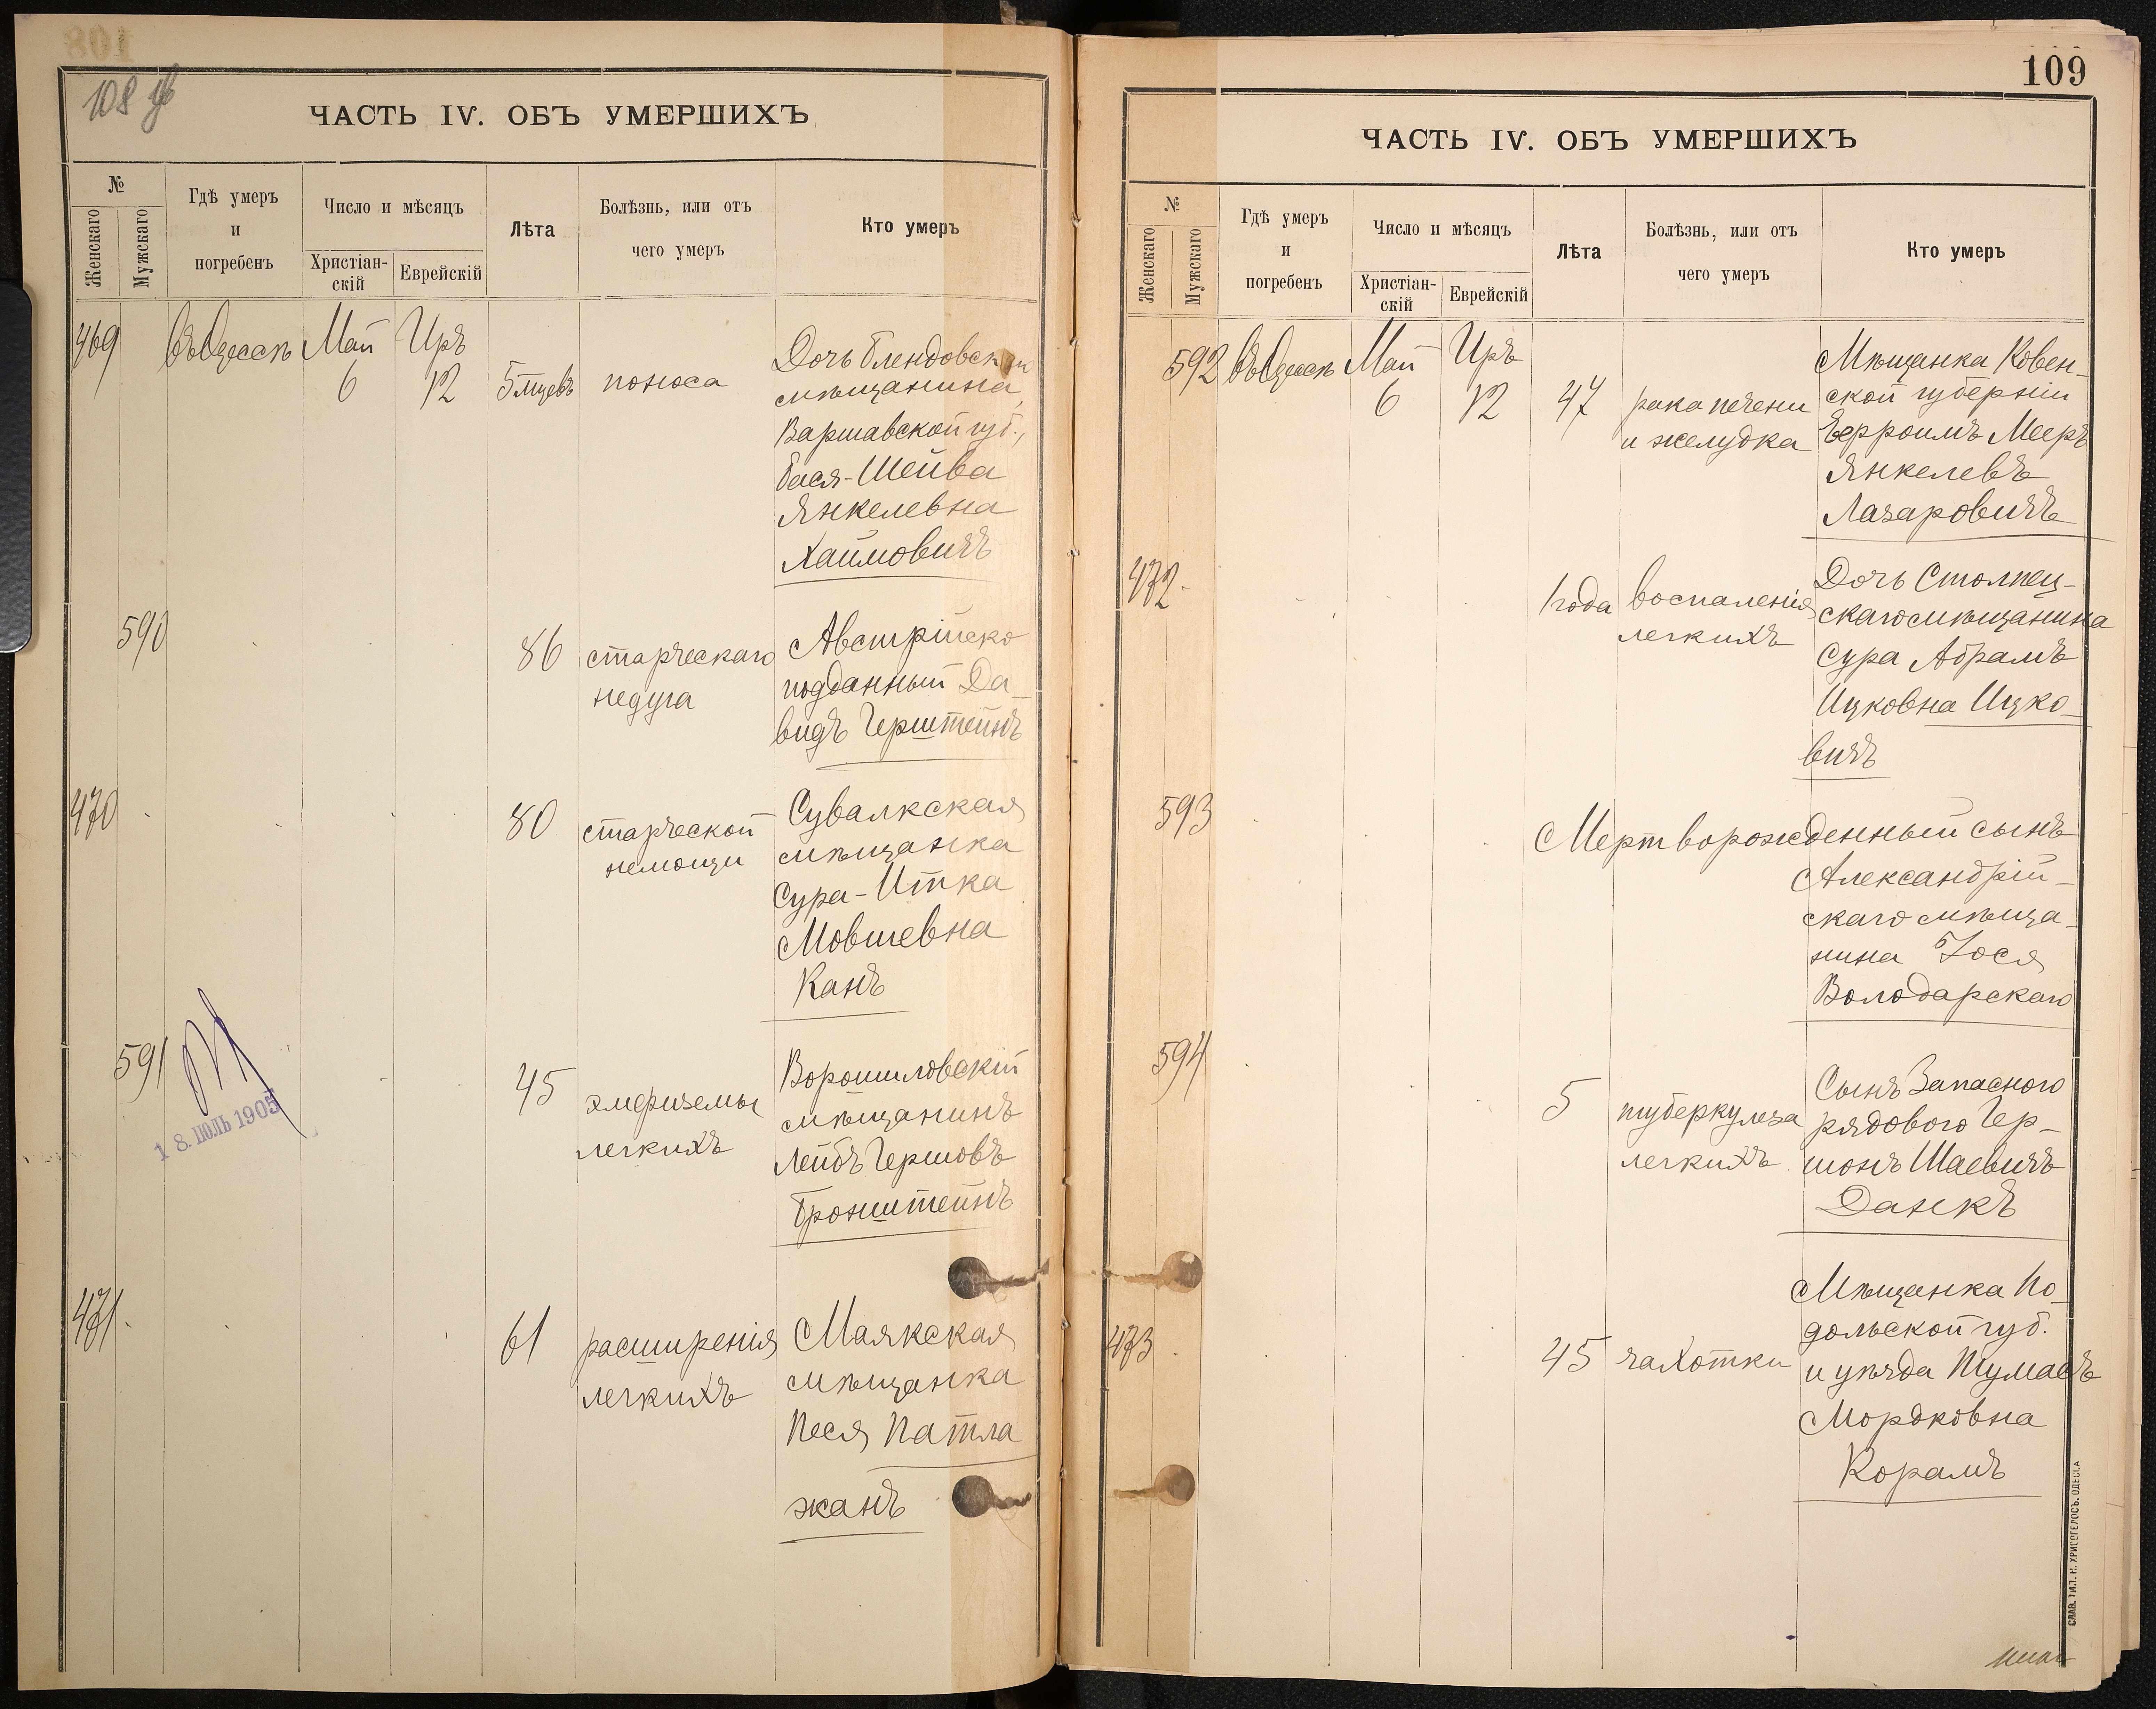 108
108 об
ЧАСТЬ IV. ОБЪ УМЕРШИХЪ
№
Женскаго
Мужскаго
Гдѣ умеръ
и
погребенъ
Число и мѣсяцъ
Христіан-
скій
Еврейскій
Лѣта
Болѣзнь, или отъ
чего умеръ
Кто умеръ
469 въ Одессѣ Май 6 Иръ 12 5 мцевъ поноса
Дочь Блендовскаго
мѣщанина,
Варшавской губ.,
Бася-Шейва
Янкелевна
Хаимовичъ
590 86 старческаго
недуга
Австрійско
подданный Да-
видъ Герштейнъ
470 80 старческой
немощи
Сувалкская
мѣщанка
Сура-Итка
Мовшевна
Канъ
591 45 эмфиземы
легкихъ
Ворошиловскій
мѣщанинъ
Лейбъ Гершовъ
Бронштейнъ
18. ІЮЛЬ 1905
471 61 расширенія
легкихъ
Маякская
мѣщанка
Песя Патла
жанъ
109
ЧАСТЬ IV. ОБЪ УМЕРШИХЪ
№
Женскаго
Мужскаго
Гдѣ умеръ
и
погребенъ
Число и мѣсяцъ
Христіан-
скій
Еврейскій
Лѣта
Болѣзнь, или отъ
чего умеръ
Кто умеръ
592 въ Одессѣ Май 6 Иръ 12 47 рака печени
и желудка
Мѣщанка Ковен-
ской губерніи
Мееръ
Янкелевъ
Лазаровичъ
472 1 года воспаленія
легкихъ
Дочь Столпец-
скаго мѣщанина
Сура Абрамъ
Ицковна Ицко-
вичъ
593 Мертворожденный сынъ
Александрій-
скаго мѣща-
нина Іося
Володарскаго
594 5 туберкулеза
легкихъ
Сынъ Запасного
рядового Гер-
шонъ Шаевичъ
Данкъ
473 45 чахотки
Мѣщанка По-
дольской губ.
и уѣзда
Мордковна
Корамъ
СЛАВ. ТИП. Н. ХРИСОГЕЛОСЪ. ОДЕССА